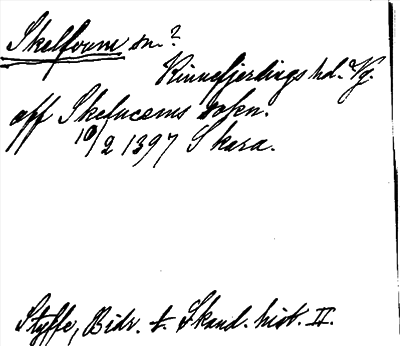 Skelfvum sn.?
Kinnefjerdings hd. Vg.
aff Skelucems sokn.
10/2 1397 Skara.
Styffe, Bidr. t. Skand. hist. II.